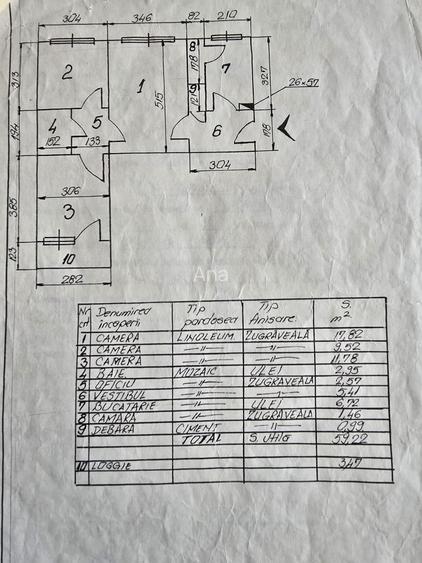 304 346 82 210
313
2
1
8
178
7
327
26×57
9
121
515
184
4
5
152 133
6
178
304
306
385
3
123
10
282
Ana
Nr crt Denumirea incaperii Tip pardosea Tip Finisare S. m²
1 CAMERA LINOLEUM ZUGRĂVEALĂ 17,82
2 CAMERA —"— —"— 9,52
3 CAMERA —"— —"— 11,78
4 BAIE MOZAIC ULEI 2,95
5 OFICIU —"— ZUGRAVEALA 2,57
6 VESTIBUL —"— —"— 5,41
7 BUCATARIE —"— ULEI 6,72
8 CAMARA —"— ZUGRAVEALA 1,46
9 DEBARA CIMENT —"— 0,99
TOTAL S. Utila 59,22
10 LOGGIE 3,47